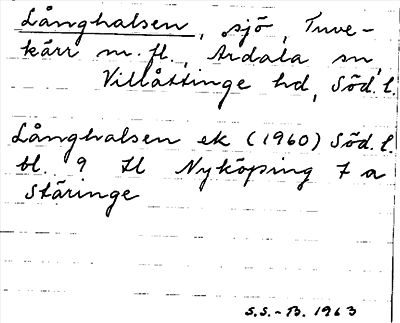 Långhalsen, sjö, Tuve-
kärr m. fl., Årdala sn,
Villåttinge hd, Söd. l.
Långhalsen ek (1960) Söd. l.
bl. 9 H Nyköping 7 a
Stäringe
S.S.-B. 1963